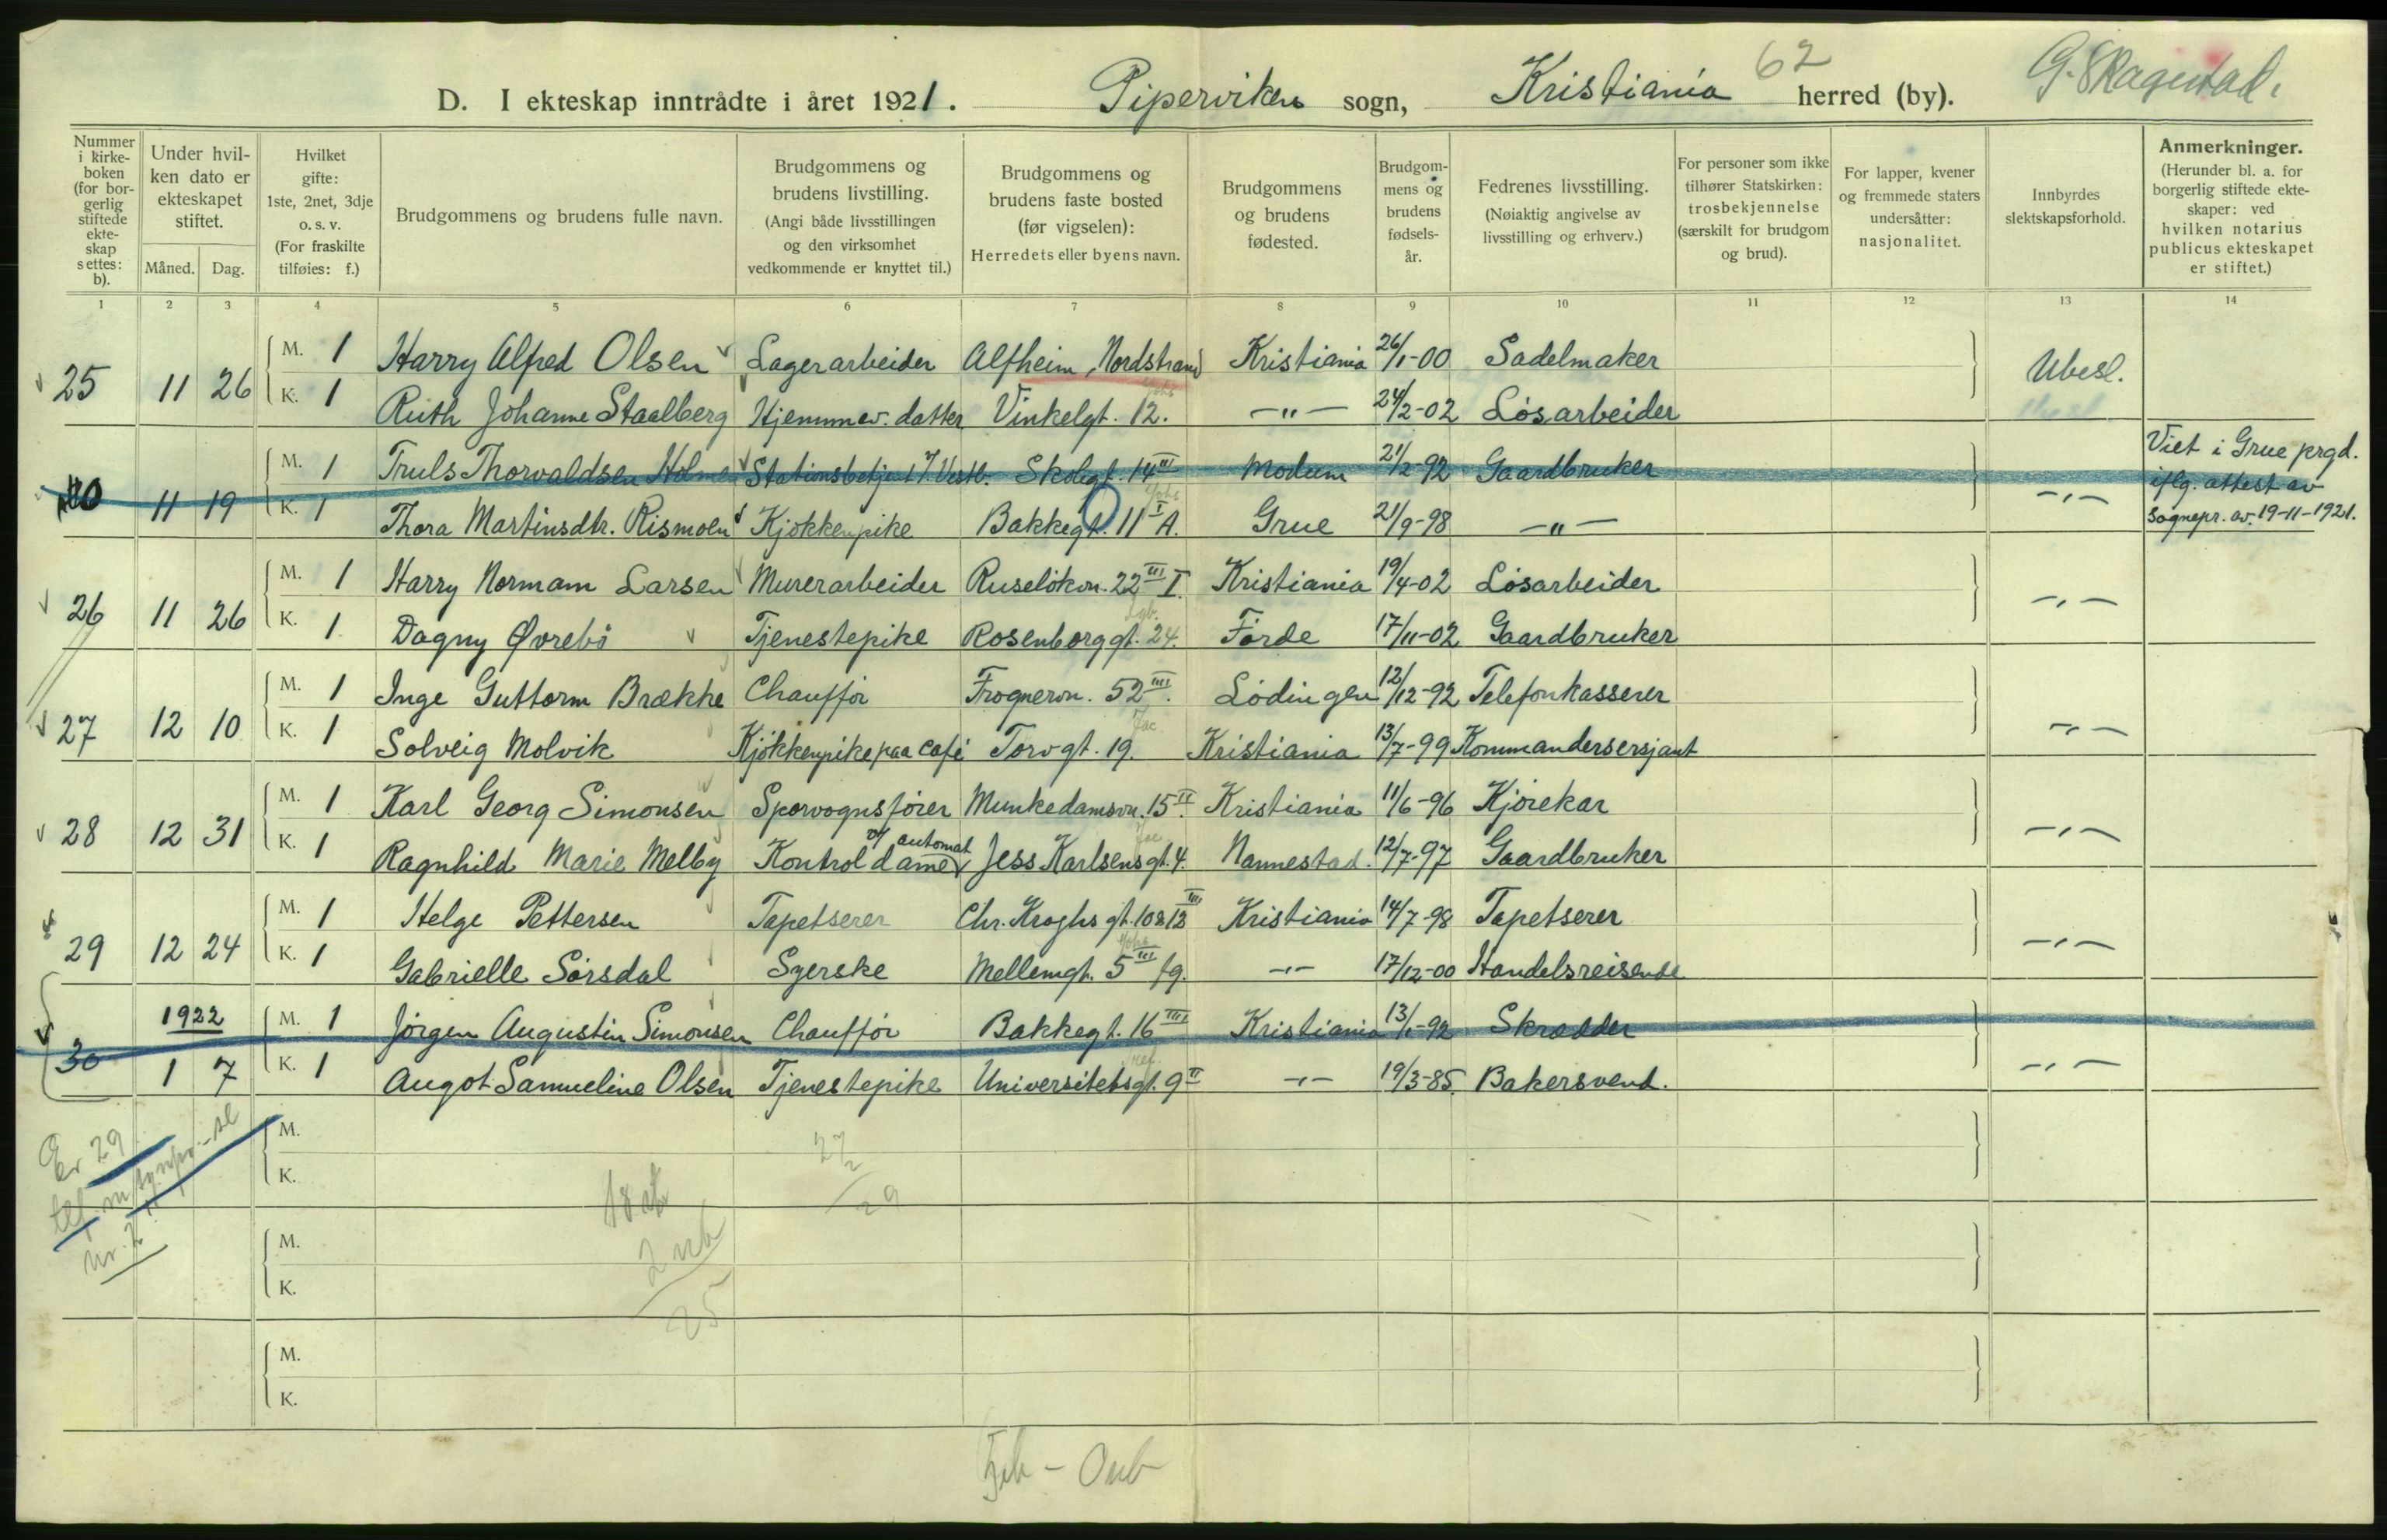 62
G. Skagestad.
D. I ekteskap inntrådte i året 1921. Piperviken sogn, Kristiania herred (by).
Nummer i kirkeboken (for borgerlig stiftede ekteskap settes: b).
Under hvilken dato er ekteskapet stiftet.
Måned. Dag.
Hvilket gifte: 1ste, 2net, 3dje o. s. v. (For fraskilte tilføies: f.)
Brudgommens og brudens fulle navn.
Brudgommens og brudens livstilling. (Angi både livsstillingen og den virksomhet vedkommende er knyttet til.)
Brudgommens og brudens faste bosted (før vigselen): Herredets eller byens navn.
Brudgommens og brudens fødested.
Brudgommens og brudens fødselsår.
Fedrenes livsstilling. (Nøiaktig angivelse av livsstilling og erhverv.)
For personer som ikke tilhører Statskirken: trosbekjennelse (særskilt for brudgom og brud).
For lapper, kvener og fremmede staters undersåtter: nasjonalitet.
Innbyrdes slektskapsforhold.
Anmerkninger. (Herunder bl. a. for borgerlig stiftede ekteskaper: ved hvilken notarius publicus ekteskapet er stiftet.)
1 2 3 4 5 6 7 8 9 10 11 12 13 14
25 11 26 M. 1 Harry Alfred Olsen Lagerarbeider Alfheim, Nordstrand Kristiania 26/1-00 Sadelmaker Ubesl.
K. 1 Ruth Johanne Staalberg Hjemmev. datter Vinkelgt. 12. -"- 24/2-02 Løsarbeider
11 19 M. 1 Truls Thorvaldsen Holmen Stationsbetj. Skolegt. 14 III Modum 21/2-92 Gaardbruker -"- Viet i Grue prgd.
iflg. attest av
K. 1 Thora Martinsdtr. Rismoen Kjøkkenpike Bakkegt. 11 I A. Grue 21/9-98 -"- Sognepr. av. 19-11-1921.
26 11 26 M. 1 Harry Normann Larsen Murerarbeider Ruseløkvn. 22 III I. Kristiania 19/4-02 Løsarbeider -"-
K. 1 Dagny Øvrebø Tjenestepike Rosenborggt. 24. Førde 17/11-02 Gaardbruker
27 12 10 M. 1 Inge Guttorm Brække Chauffør Frognervn. 52 III. Lødingen 12/12-92 Telefonkasserer -"-
K. 1 Solveig Molvik Kjøkkenpike paa café Torvgt. 19. Kristiania 13/7-99 Kommandersersjant
28 12 31 M. 1 Karl Georg Simonsen Sporvognsfører Munkedamsvn. 15 II. Kristiania 11/6-96 Kjørekar -"-
K. 1 Ragnhild Marie Melby Kontroldame v/ automat Jess Karlsensgt. 4. Nannestad. 12/7-97 Gaardbruker
29 12 24 M. 1 Helge Pettersen Tapetserer Chr. Kroghs gt. 10 & 12 III Kristiania 14/7-98 Tapetserer -"-
K. 1 Gabrielle Sørsdal Syerske Mellemgt. 5 III fg. -"- 17/12-00 Handelsreisende
1922
30 1 7 M. 1 Jørgen Augustin Simonsen Chauffør Bakkegt. 16 III Kristiania 13/1-92 Skrædder -"-
K. 1 Augot Samueline Olsen Tjenestepike Universitetsgt. 9 II -"- 19/3-85. Bakersvend.
M.
K.
M.
K.
M.
K.
Er 29
nr. 2
27
2
29
2 ub
25
- Oub